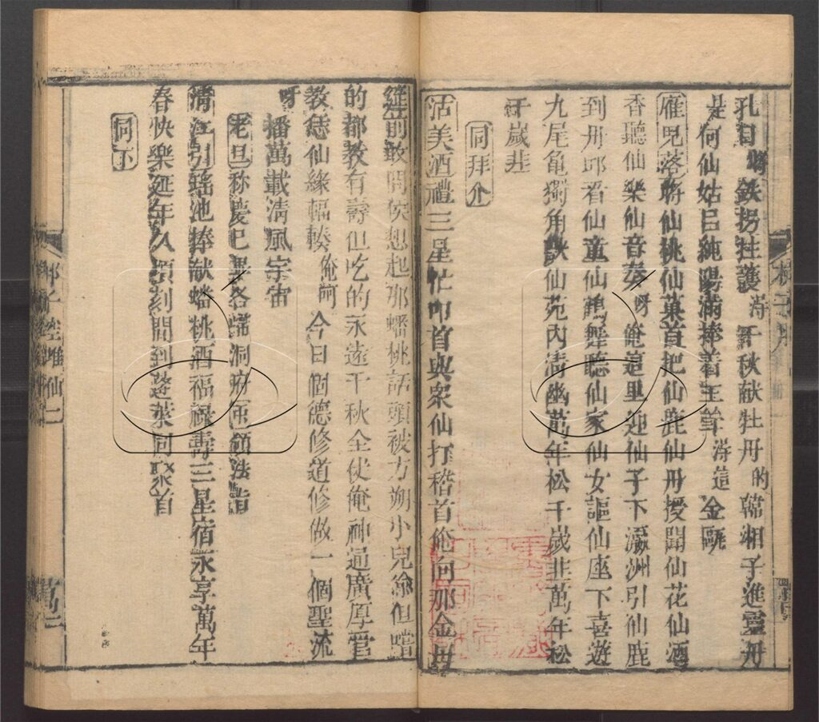 孔目 鉄拐拄護 千秋献牡丹的韓湘子進靈丹
是何仙姑呂純陽滿捧着玉 這金甌
雁児落將仙桃仙菓首把仙鹿仙丹授聞仙花仙酒
香聽仙樂仙音奏呀俺這里迎仙子下瀛洲引仙鹿
到丹邱看仙童仙鶴舞聽仙家仙女謳仙座下喜遊
九尾龜獨角 仙苑内清幽萬年松千歲韭萬年松
千歲韭
同拜介
沽美酒禮三星忙叩首與眾仙打稽首俺向那金母
筵前敢問侯想起那蟠桃話頭被方朔小兒偷但嚐
的都教有壽但吃的永遠千秋全仗俺神通廣厚管
教恁仙緣輻輳俺阿今日個德修道修做一個聖流
呀播萬載清風宇宙
老旦称慶已畢各歸洞府 領法旨
清江引瑤池捧献蟠桃酒福祿壽三星宿永享萬年
春快樂延年久頃刻間到蓬萊同聚首
同下